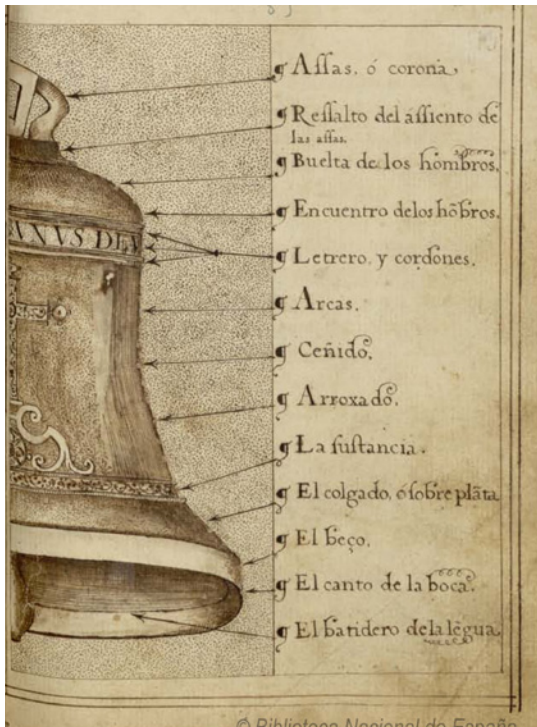 Assas, ó corona,
Ressalto del assiento de
las assas.
Buelta de los hombros,
Encuentro delos hõbros.
ANVS DEV
Letrero, y cordones,
Arcas,
Ceñido,
Arroxado,
La sustancia.
El colgado, ó sobre plãta
El beço,
El canto de la boca.
El batidero dela lẽgua.
© Biblioteca Nacional de España